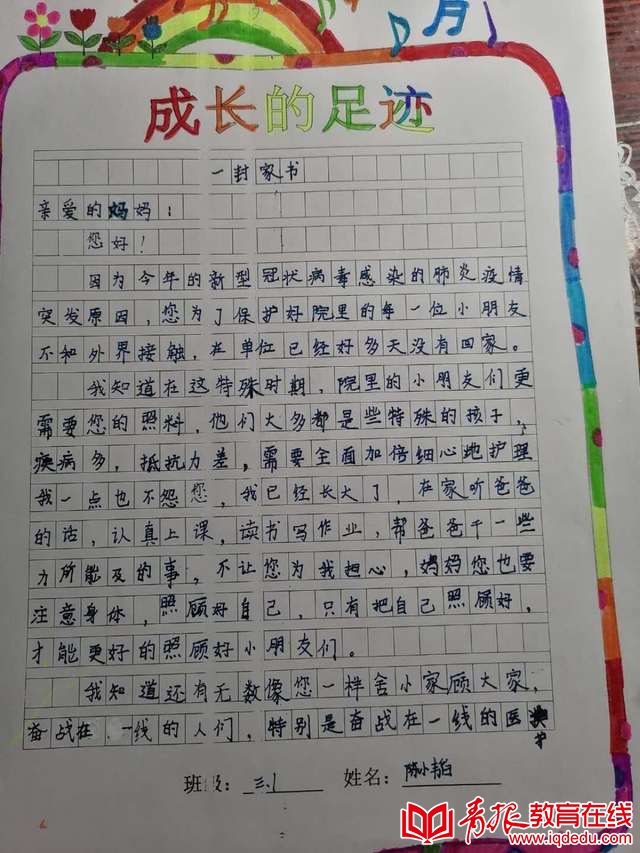 月
成长的足迹
一封家书
亲爱的妈妈：
您好！
因为今年的新型冠状病毒感染的肺炎疫情
突发原因，您为了保护好院里的每一位小朋友
不和外界接触，在单位已经好多天没有回家。
我知道在这特殊时期，院里的小朋友们更
需要您的照料，他们大多都是些特殊的孩子，
疾病多，抵抗力差，需要全面加倍细心地护理
我一点也不怨您，我已经长大了，在家听爸爸
的话，认真上课，读书写作业，帮爸爸干一些
力所能及的事，不让您为我担心，妈妈您也要
注意身体，照顾好自己，只有把自己照顾好，
才能更好的照顾好小朋友们。
我知道还有无数像您一样舍小家顾大家，
奋战在一线的人们，特别是奋战在一线的医护
班级：三.1 姓名：陈小
青报教育在线
www.iqdedu.com